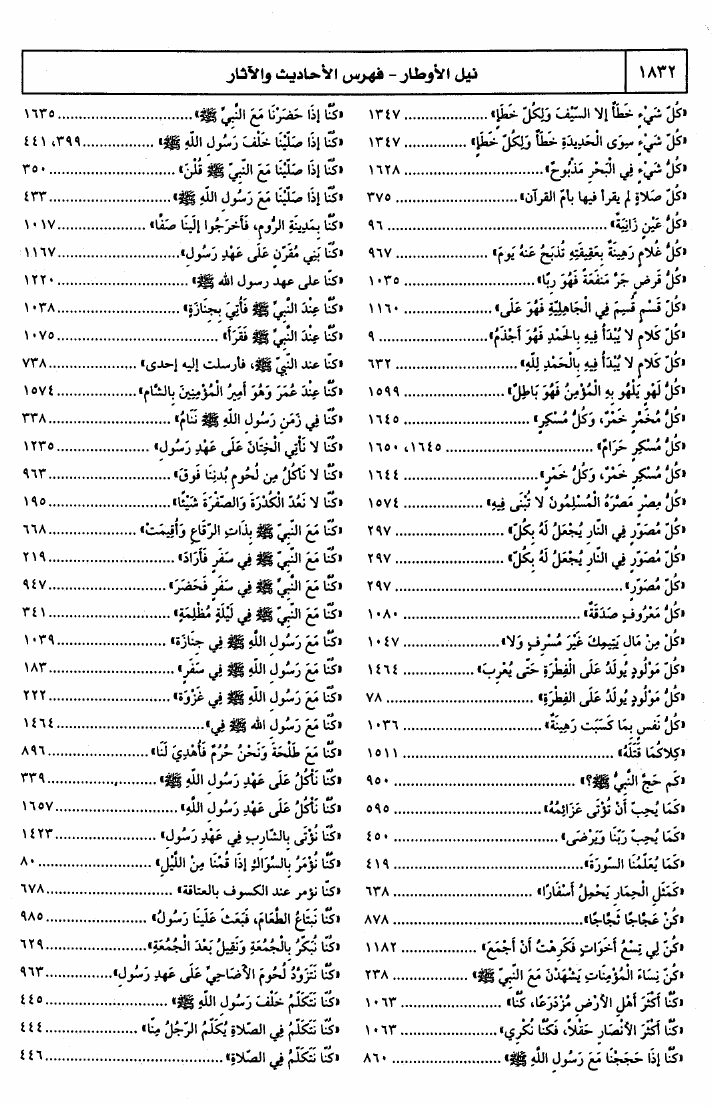 ١٨٣٢
نيل الأوطار - فهرس الأحاديث والآثار
«كُلّ شَيْءٍ خَطَأٌ إلا السَّيْفَ وَلِكُلّ خَطَإٍ» ..................... ١٣٤٧
«كُلّ شَيْءٍ سِوَى الْحَدِيدَةِ خَطَأٌ وَلِكُلّ خَطَإٍ» ................. ١٣٤٧
«كُلُّ شَيْءٍ فِي الْبَحْرِ مَذْبُوحٌ» ........................ ١٦٢٨
«كلّ صَلاةٍ لم يقرأ فيها بأمّ القرآن» ............................. ٣٧٥
«كُلُّ عَيْنٍ زَانِيَةٌ» ......................................... ٩٦
«كُلُّ غُلامٍ رَهِينَةٌ بِعَقِيقَتِهِ تُذبَحُ عَنْهُ يَومَ» ................. ٩٦٧
«كُلُّ قَرضٍ جَرَّ مَنفَعَةٌ فَهُوَ رِبًا» ........................ ١٠٣٥
«كُلّ قَسْمٍ قُسِمَ فِي الْجَاهِلِيَّةِ فَهُوَ عَلَى» ................. ١١٦٠
«كُلّ كَلَامٍ لا يُبْدَأُ فِيهِ بِالحَمْدِ فَهُوَ أَجْذَمُ» .................. ٩
«كُلّ كَلَامٍ لا يُبْدَأُ فِيهِ بِالْحَمْدِ لِلَّهِ» ...................... ٦٣٢
«كُلُّ لَهوٍ يَلْهُو بِهِ الْمُؤْمِنُ فَهُوَ بَاطِلٌ» .................... ١٥٩٩
«كُلُّ مُخَمَّرٍ خَمْرٌ، وَكُلُّ مُسْكِرٍ» ......................... ١٦٤٥
«كُلُّ مُسكِرٍ حَرَامٌ» ........................... ١٦٤٥، ١٦٥٠
«كُلُّ مُسْكِرٍ خَمْرٌ، وَكُلُّ خَمْرٍ» .......................... ١٦٤٤
«كُلُّ مِصْرٍ مَصَّرَهُ الْمُسْلِمُونَ لا تُبْنَى فِيهِ» ................... ١٥٧٤
«كُلّ مُصَوِّرٍ فِي النَّارِ يُجْعَلُ لَهُ بِكُلّ» ........................ ٢٩٧
«كُلّ مُصَوِّرٍ فِي النَّارِ يُجْعَلُ لَهُ بِكُلّ» ........................ ٢٩٧
«كُلّ مُصَوِّرٍ» ............................................ ٢٩٧
«كُلُّ مَعْرُوفٍ صَدَقَةٌ» ................................... ١٠٨٠
«كُلْ مِنْ مَالِ يَتِيمِكَ غَيْرَ مُسْرِفٍ وَلا» ..................... ١٠٤٧
«كُلّ مَوْلُودٍ يُولَدُ عَلَى الْفِطْرَةِ حَتَّى يُعْرِبَ» ................ ١٤٦٤
«كُلُّ مَوْلُودٍ يُولَدُ عَلَى الفِطْرَةِ» ............................ ٧٨
«كُلُّ نَفسٍ بِمَا كَسَبَت رَهِينَةٌ» ........................... ١٠٣٦
«كِلاكُمَا قَتَلَهُ» ....................................... ١٥١١
«كَم حَجَّ النَّبِيُّ ﷺ؟» ................................... ٩٥٠
«كَمَا يُحِبّ أَنْ تُؤْتَى عَزَائِمُهُ» ............................ ٥٩٥
«كَمَا يُحِبّ رَبّنَا وَيَرْضَى» ............................... ٤٥٠
«كَمَا يُعَلّمُنَا السّورَةَ» .................................... ٤١٩
«كَمَثَلِ الْحِمَارِ يَحْمِلُ أَسْفَارًا» .......................... ٦٣٨
«كُنْ عَجَّاجًا ثَجَّاجًا» .................................... ٨٧٨
«كُنّ لِي تِسْعُ أَخَوَاتٍ فَكَرِهْتُ أَنْ أَجْمَعَ» ................. ١١٨٢
«كُنّ نِسَاءَ الْمُؤْمِنَاتِ يَشْهَدْنَ مَعَ النَّبِيّ ﷺ» .............. ٢٣٨
«كُنَّا أَكْثَرَ أَهْلِ الأرْضِ مُزْدَرَعًا، كُنَّا» ..................... ١٠٦٣
«كُنَّا أَكْثَرَ الأنْصَارِ حَقْلاً، فَكُنَّا نُكْرِي» ................... ١٠٦٣
«كُنَّا إذَا حَجَجْنَا مَعَ رَسُولِ اللَّهِ ﷺ» ..................... ٨٦٠
«كُنَّا إذَا حَضَرْنَا مَعَ النَّبِيِّ ﷺ» ......................... ١٦٣٥
«كُنَّا إذَا صَلَّيْنَا خَلْفَ رَسُولِ اللَّهِ ﷺ» .............. ٣٩٩، ٤٤١
«كُنَّا إذَا صَلَّيْنَا مَعَ النَّبِيّ ﷺ قُلْنَ» ....................... ٣٥٠
«كُنَّا إذَا صَلَّيْنَا مَعَ رَسُولِ اللَّهِ ﷺ» ...................... ٤٣٣
«كُنَّا بِمَدِينَةِ الرُّومِ، فَأَخرَجُوا إلَينَا صَفًّا» .................. ١٠١٧
«كُنَّا بَنِي مُقَرِّنٍ عَلَى عَهْدِ رَسُولِ» ....................... ١١٦٧
«كنا على عهد رسول الله ﷺ» ........................... ١٢٢٠
«كُنَّا عِنْدَ النَّبِيّ ﷺ فَأُتِيَ بِجِنَازَةٍ» ....................... ١٠٣٨
«كُنَّا عِنْدَ النَّبِيِّ ﷺ فَقَرَأَ» ............................. ١٠٧٥
«كنا عند النبيّ ﷺ، فأرسلت إليه إحدى» .................. ٧٣٨
«كُنَّا عِنْدَ عُمَرَ وَهُوَ أَمِيرُ الْمُؤْمِنِينَ بِالشَّامِ» ................. ١٥٧٤
«كُنَّا فِي زَمَنِ رَسُولِ اللَّهِ ﷺ نَنَامُ» ....................... ٣٣٨
«كُنَّا لا نَأتِي الْخِتَانَ عَلَى عَهْدِ رَسُولِ» .................... ١٢٣٥
«كُنَّا لا نَأْكُلُ مِن لُحُومِ بُدنِنَا فَوقَ» ....................... ٩٦٣
«كُنَّا لا نَعُدّ الْكُدْرَةَ وَالصّفْرَةَ شَيْئًا» ........................ ١٩٥
«كُنَّا مَعَ النَّبِيّ ﷺ بِذَاتِ الرِّقَاعِ وَأُقِيمَتْ» ................. ٦٦٨
«كُنَّا مَعَ النَّبِيّ ﷺ فِي سَفَرٍ فَأَرَادَ» ....................... ٢١٩
«كُنَّا مَعَ النَّبِيِّ ﷺ فِي سَفَرٍ فَحَضَرَ» ..................... ٩٤٧
«كُنَّا مَعَ النَّبِيّ ﷺ فِي لَيْلَةٍ مُظْلِمَةٍ» ...................... ٣٤١
«كُنَّا مَعَ رَسُولِ اللَّهِ ﷺ فِي جنازة» ...................... ١٠٣٩
«كُنَّا مَعَ رَسُولِ اللَّهِ ﷺ فِي سَفَرٍ» ....................... ١٨٣
«كُنَّا مَعَ رَسُولِ اللَّهِ ﷺ فِي غَزْوَة» ....................... ٢٢٢
«كُنَّا مَعَ رَسُولِ الله ﷺ فِي» ........................... ١٤٦٤
«كُنَّا مَعَ طَلْحَةَ وَنَحْنُ حُرُمٌ فَأُهْدِيَ لَنَا» .................... ٨٩٦
«كُنَّا نَأْكُلُ عَلَى عَهْدِ رَسُولِ اللَّهِ ﷺ» ................... ٣٣٩
«كُنَّا نَأْكُلُ عَلَى عَهْدِ رَسُولِ اللَّهِ» ....................... ١٦٥٧
«كُنَّا نُؤْتَى بِالشَّارِبِ فِي عَهْدِ رَسُولِ» ..................... ١٤٢٣
«كُنَّا نُؤْمَرُ بِالسّوَاكِ إذَا قُمْنَا مِنْ اللَّيْلِ» ........................ ٨٠
«كنّا نؤمر عند الكسوف بالعتاقة» ......................... ٦٧٨
«كُنَّا نَبتَاعُ الطَّعَامَ، فَبَعَثَ عَلَينَا رَسُولُ» ................... ٩٨٥
«كُنَّا نُبَكّرُ بِالْجُمُعَةِ وَنَقِيلُ بَعْدَ الْجُمُعَةِ» .................... ٦٢٩
«كُنَّا نَتَزَوَّدُ لُحُومَ الأضَاحِيِّ عَلَى عَهدِ رَسولِ» ............... ٩٦٣
«كُنَّا نَتَكَلّمُ خَلْفَ رَسُولِ اللَّهِ ﷺ» ..................... ٤٤٥
«كُنَّا نَتَكَلّمُ فِي الصّلَاةِ يُكَلّمُ الرّجُلُ مِنَّا» .................... ٤٤٤
«كُنَّا نَتَكَلّمُ فِي الصّلَاةِ» ................................ ٤٤٦